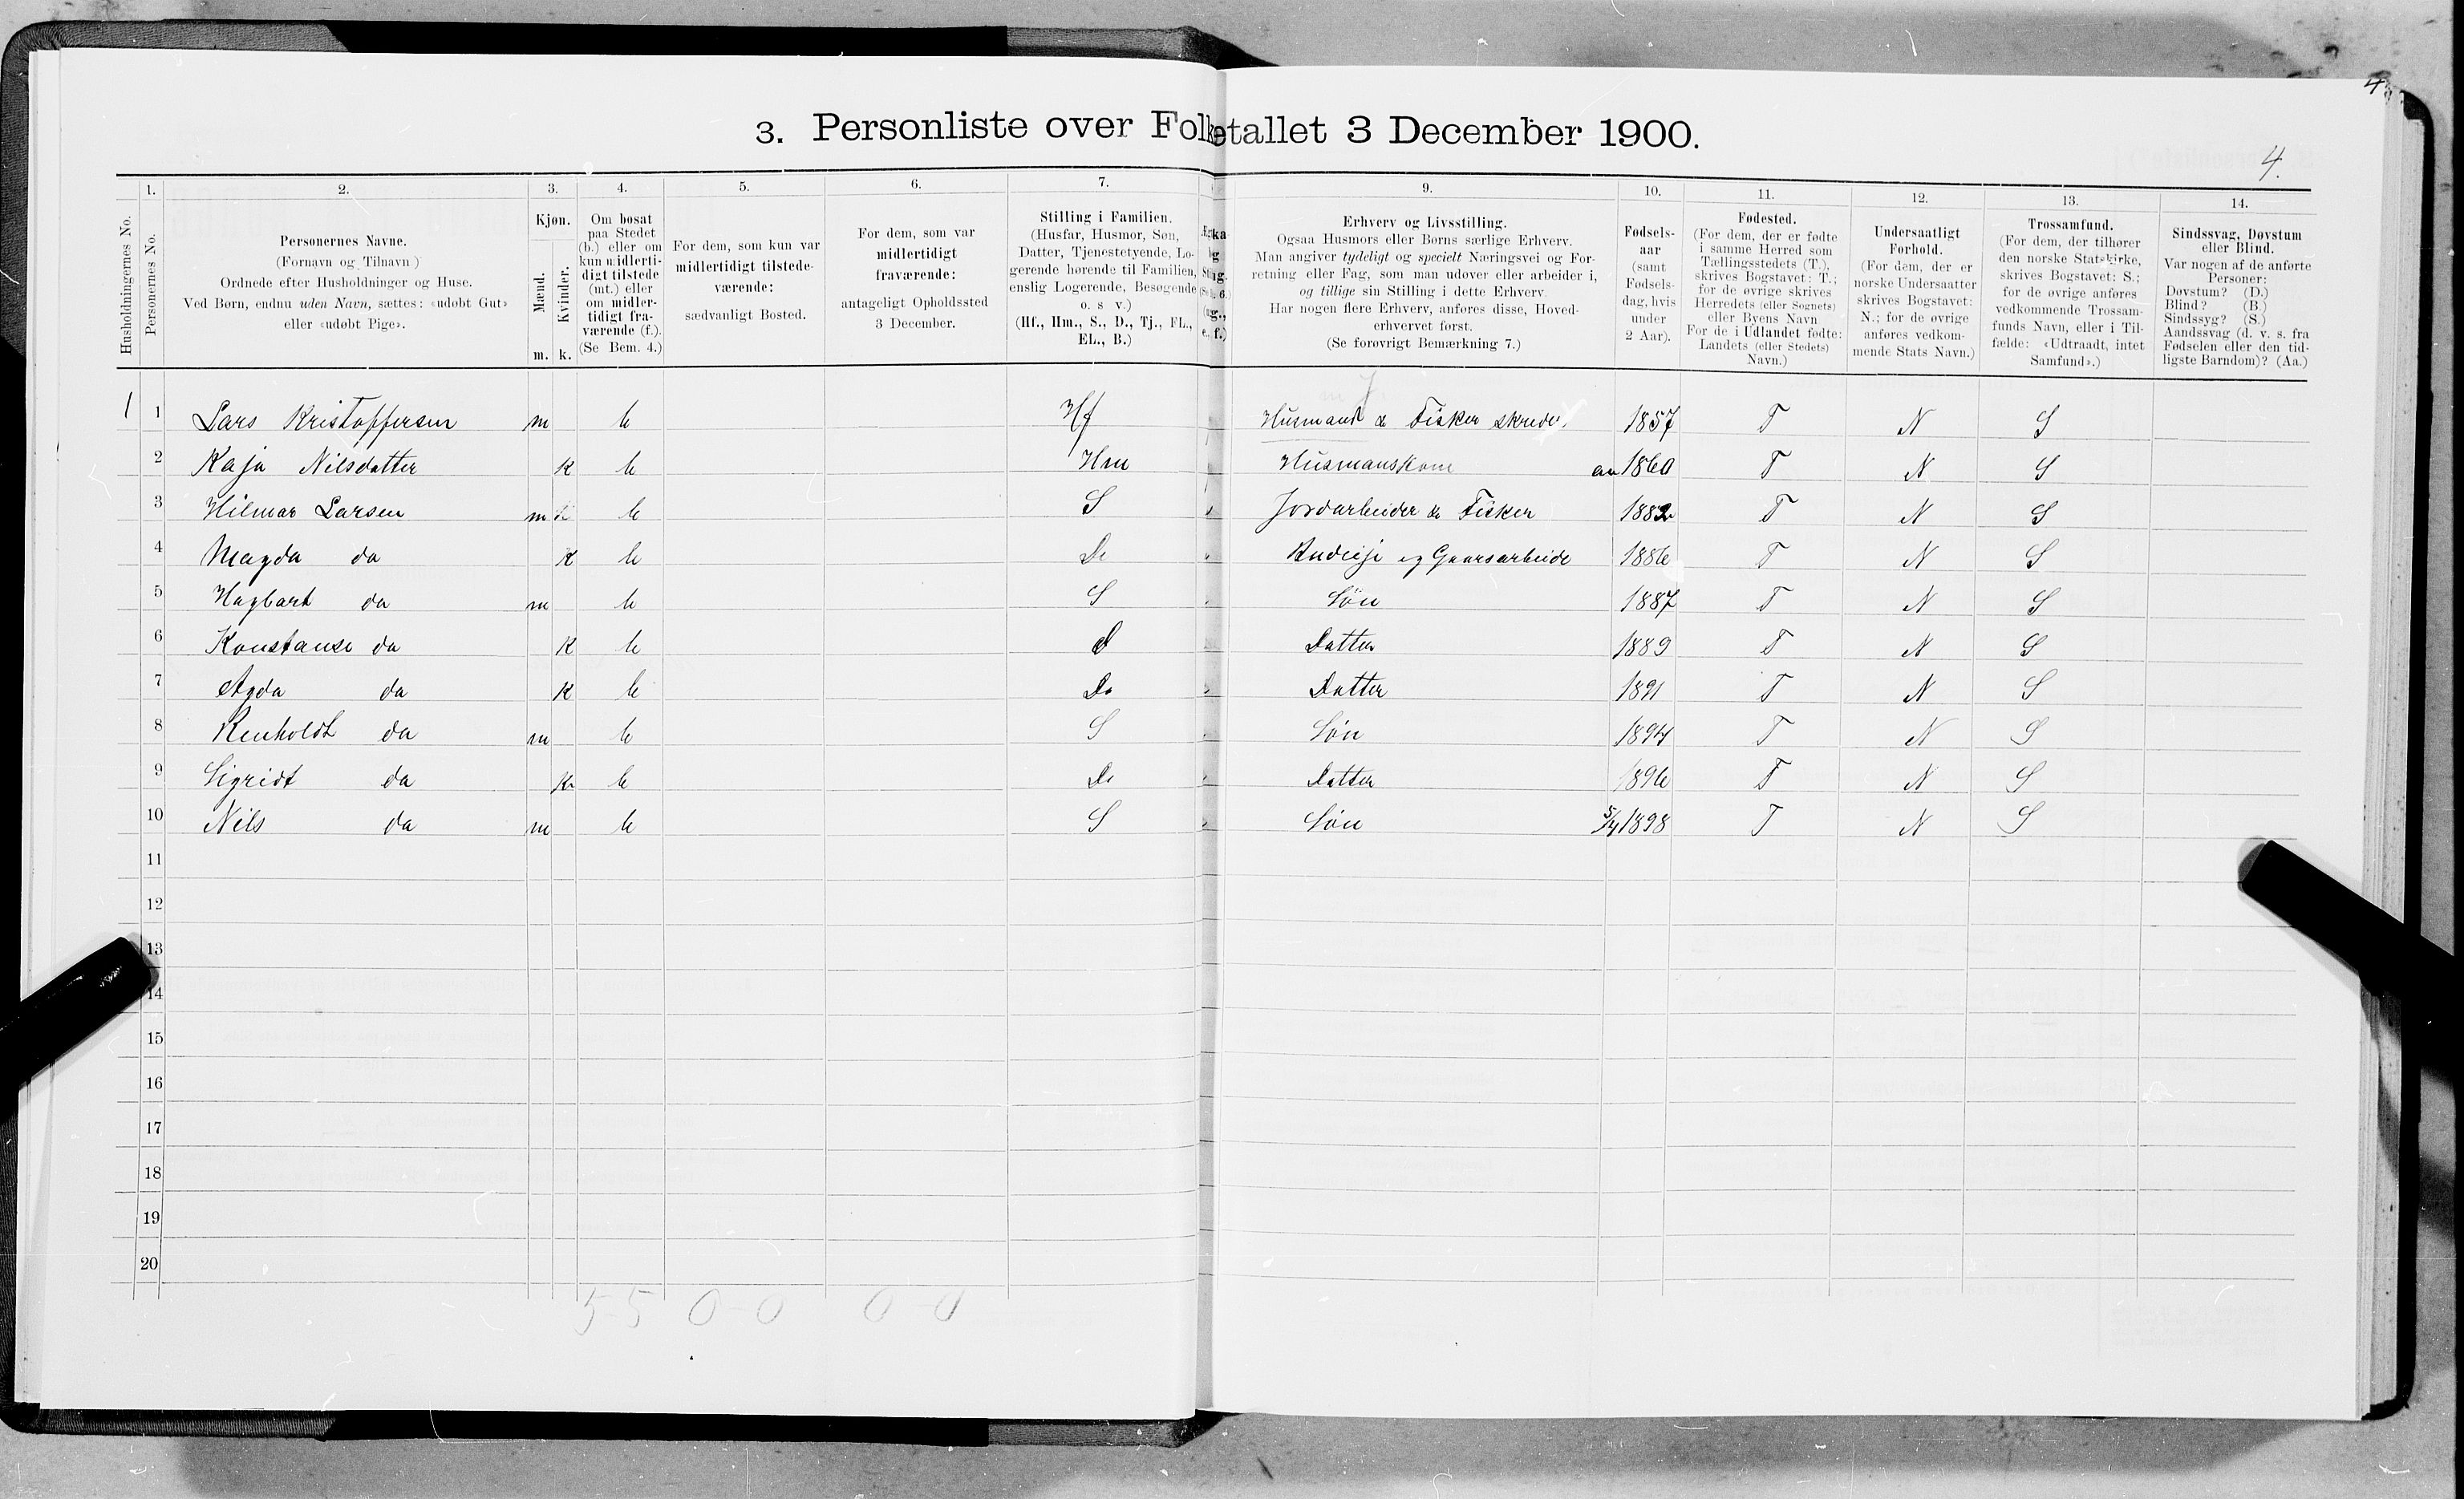 4
3. Personliste over Folketallet 3 December 1900.
4.
1. 2. 3. 4. 5. 6. 7. 9. 10. 11. 12. 13. 14.
Husholdningernes No.
Personernes No.
Personernes Navne.
(Fornavn og Tilnavn)
Ordnede efter Husholdninger og Huse.
Ved Børn, endnu uden Navn, sættes: «udøbt Gut»
eller «udøbt Pige».
Kjøn.
Mænd.
Kvinder.
m. k.
Om bosat
paa Stedet
(b.) eller om
kun midlerti-
digt tilstede
(mt.) eller
om midler-
tidigt fra-
værende (f.).
(Se Bem. 4.)
For dem, som kun var
midlertidigt tilstede-
værende:
sædvanligt Bosted.
For dem, som var
midlertidigt
fraværende:
antageligt Opholdssted
3 December.
Stilling i Familien.
(Husfar, Husmor, Søn,
Datter, Tjenestetyende, Lo-
gerende hørende til Familien,
enslig Logerende, Besøgende
o. s v.)
(Hf., Hm., S., D., Tj., FL.,
EL., B.)
Erhverv og Livsstilling.
Ogsaa Husmors eller Børns særlige Erhverv.
Man angiver tydeligt og specielt Næringsvei og For-
retning eller Fag, som man udøver eller arbeider i,
og tillige sin Stilling i dette Erhverv.
Har nogen flere Erhverv, anføres disse, Hoved-
erhvervet først.
(Se forøvrigt Bemærkning 7.)
Fødsels-
aar
(samt
Fødsels-
dag, hvis
under
2 Aar).
Fødested.
(For dem, der er fødte
i samme Herred som
Tællingsstedets (T.),
skrives Bogstavet: T.;
for de øvrige skrives
Herredets (eller Sognets)
eller Byens Navn
For de i Udlandet fødte:
Landets (eller Stedets)
Navn.)
Undersaatligt
Forhold.
(For dem, der er
norske Undersaatter
skrives Bogstavet:
N.; for de øvrige
anføres vedkom-
mende Stats Navn.)
Trossamfund.
(For dem, der tilhører
den norske Statskirke,
skrives Bogstavet: S.;
for de øvrige anføres
vedkommende Trossam-
funds Navn, eller i Til-
fælde: «Udtraadt, intet
Samfund».)
Sindssvag, Døvstum
eller Blind.
Var nogen af de anførte
Personer:
Døvstum? (D.)
Blind? (B.)
Sindssyg? (S.)
Aandssvag (d. v. s. fra
Fødselen eller den tid-
ligste Barndom)? (Aa.)
1 1 Lars Kristoffersen m b Hf Husmand & Fisker 1857 T N S
2 Kaja Nilsdatter K b Hm Husmanskone 1860 T N S
3 Hilmar Larsen m b S Jordarbeider & Fisker 1882 T N S
4 Magda do K b D 1886 T N S
5 Hagbart do m b S Søn 1887 T N S
6 Konstanse do K b d Datter 1889 T N S
7 Agda do K b Do Datter 1891 T N S
8 Renholdt do m b S Søn 1894 T N S
9 Sigridt do K b D Datter 1896 T N S
10 Nils do m b S Søn 5/4 1898 T N S
11
12
13
14
15
16
17
18
19
20
5-5 0-0 0-0